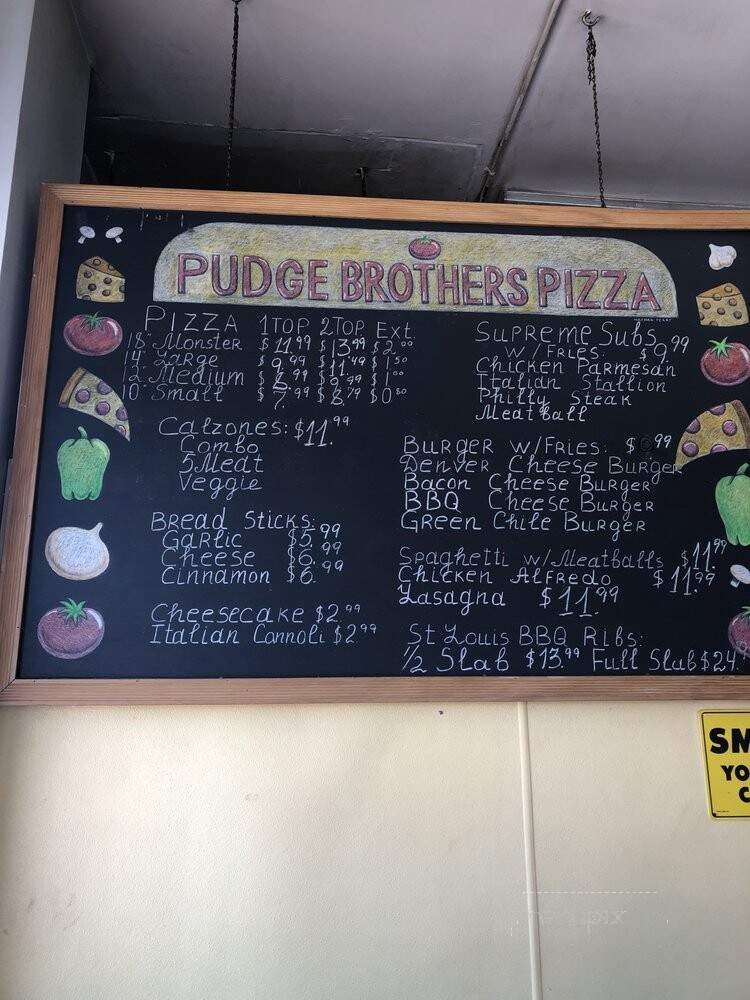 PUDGE BROTHERS PIZZA
Pizza 1 TOP 2 TOP Ext
18" Monster $11.99 $13.99 $2.00
14" Large $9.99 $11.49 $1.50
12" Medium $8.99 $9.99 $1.00
10" Small $7.99 $8.79 $0.50
Calzones: $11.99
Combo
5 Meat
Veggie
Bread Sticks:
Garlic $5.99
Cheese $6.99
Cinnamon $6.99
Cheesecake $2.99
Italian Cannoli $2.99
Supreme Subs
w/Fries: $9.99
Chicken Parmesan
Italian Stallion
Philly Steak
Meatball
Burger w/Fries: $ .99
Denver Cheese Burger
Bacon Cheese Burger
BBQ Cheese Burger
Green Chile Burger
Spaghetti w/Meatballs $11.99
Chicken Alfredo $11.99
Lasagna $11.99
St Louis BBQ Ribs:
1/2 Slab $13.99 Full Slab $24.9
SM
YO
C